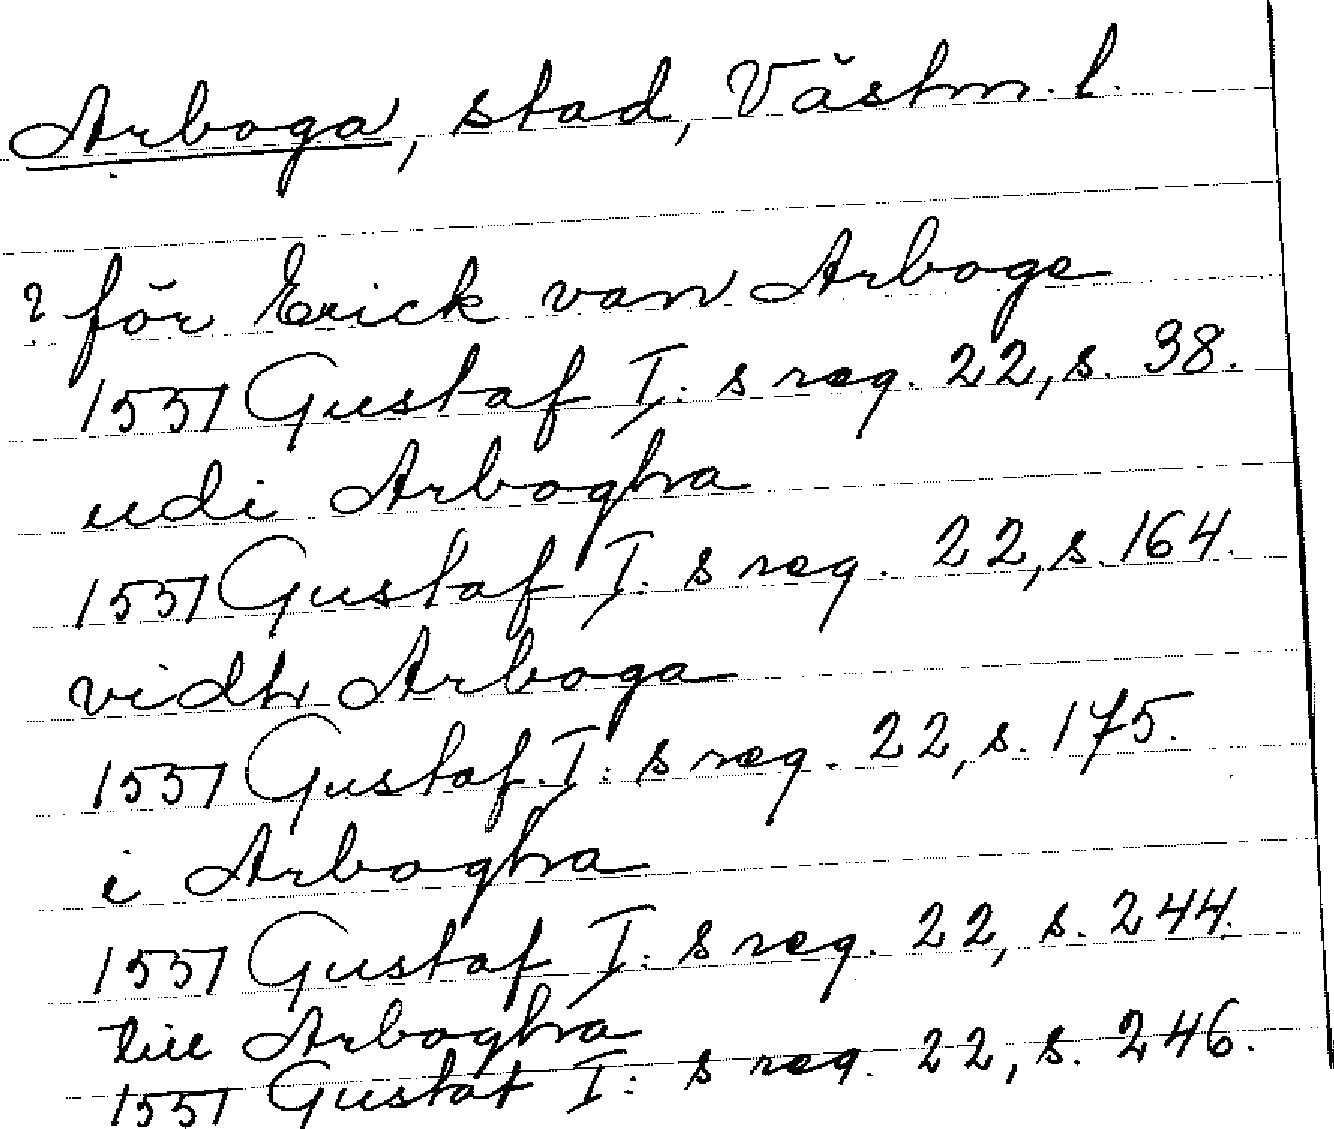 Arboga, stad, Västm. l.
? för Erick van Arboge
1551 Gustaf I:s reg. 22, s. 38.
udi Arbogha
1551 Gustaf I:s reg. 22, s. 164.
vidh Arboga
1551 Gustaf I:s reg. 22, s. 175.
i Arbogha
1551 Gustaf I:s reg. 22, s. 244.
till Arbogha
1551 Gustaf I:s reg. 22, s. 246.